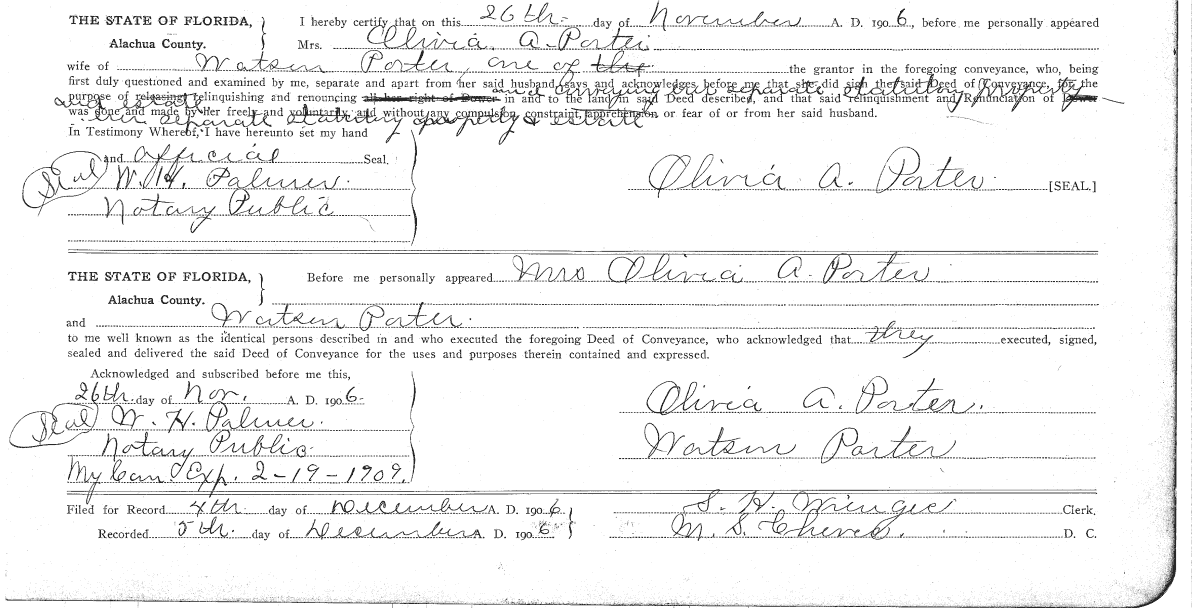 THE STATE OF FLORIDA, } I hereby certify that on this 26th day of November A. D. 1906, before me personally appeared
Alachua County. Mrs. Olivia A. Porter
wife of Watson Porter, one of the the grantor in the foregoing conveyance, who, being
first duly questioned and examined by me, separate and apart from her said husband, says and acknowledges before me that she did sign the said Deed of Conveyance, for the
and conveying her separate statutory property
purpose of releasing, relinquishing and renouncing all her right of Dower in and to the land in said Deed described, and that said relinquishment and Renunciation of Dower
and estate
was done and made by her freely and voluntarily and without any compulsion, constraint, apprehension or fear of or from her said husband.
her separate statutory property & estate
In Testimony Whereof, I have hereunto set my hand
and official Seal.
(Seal) W. H. Palmer Olivia A. Porter [SEAL.]
Notary Public
THE STATE OF FLORIDA, } Before me personally appeared Mrs Olivia A. Porter
Alachua County.
and Watson Porter
to me well known as the identical persons described in and who executed the foregoing Deed of Conveyance, who acknowledged that they executed, signed,
sealed and delivered the said Deed of Conveyance for the uses and purposes therein contained and expressed.
Acknowledged and subscribed before me this,
26th day of Nov. A. D. 1906. Olivia A. Porter.
(Seal) W. H. Palmer.
Notary Public Watson Porter
My Com. Exp. 2-19-1909.
Filed for Record 4th day of December A. D. 1906 } S. H. Wienges Clerk.
Recorded 5th day of December A. D. 1906 M. S. Cheves. D. C.